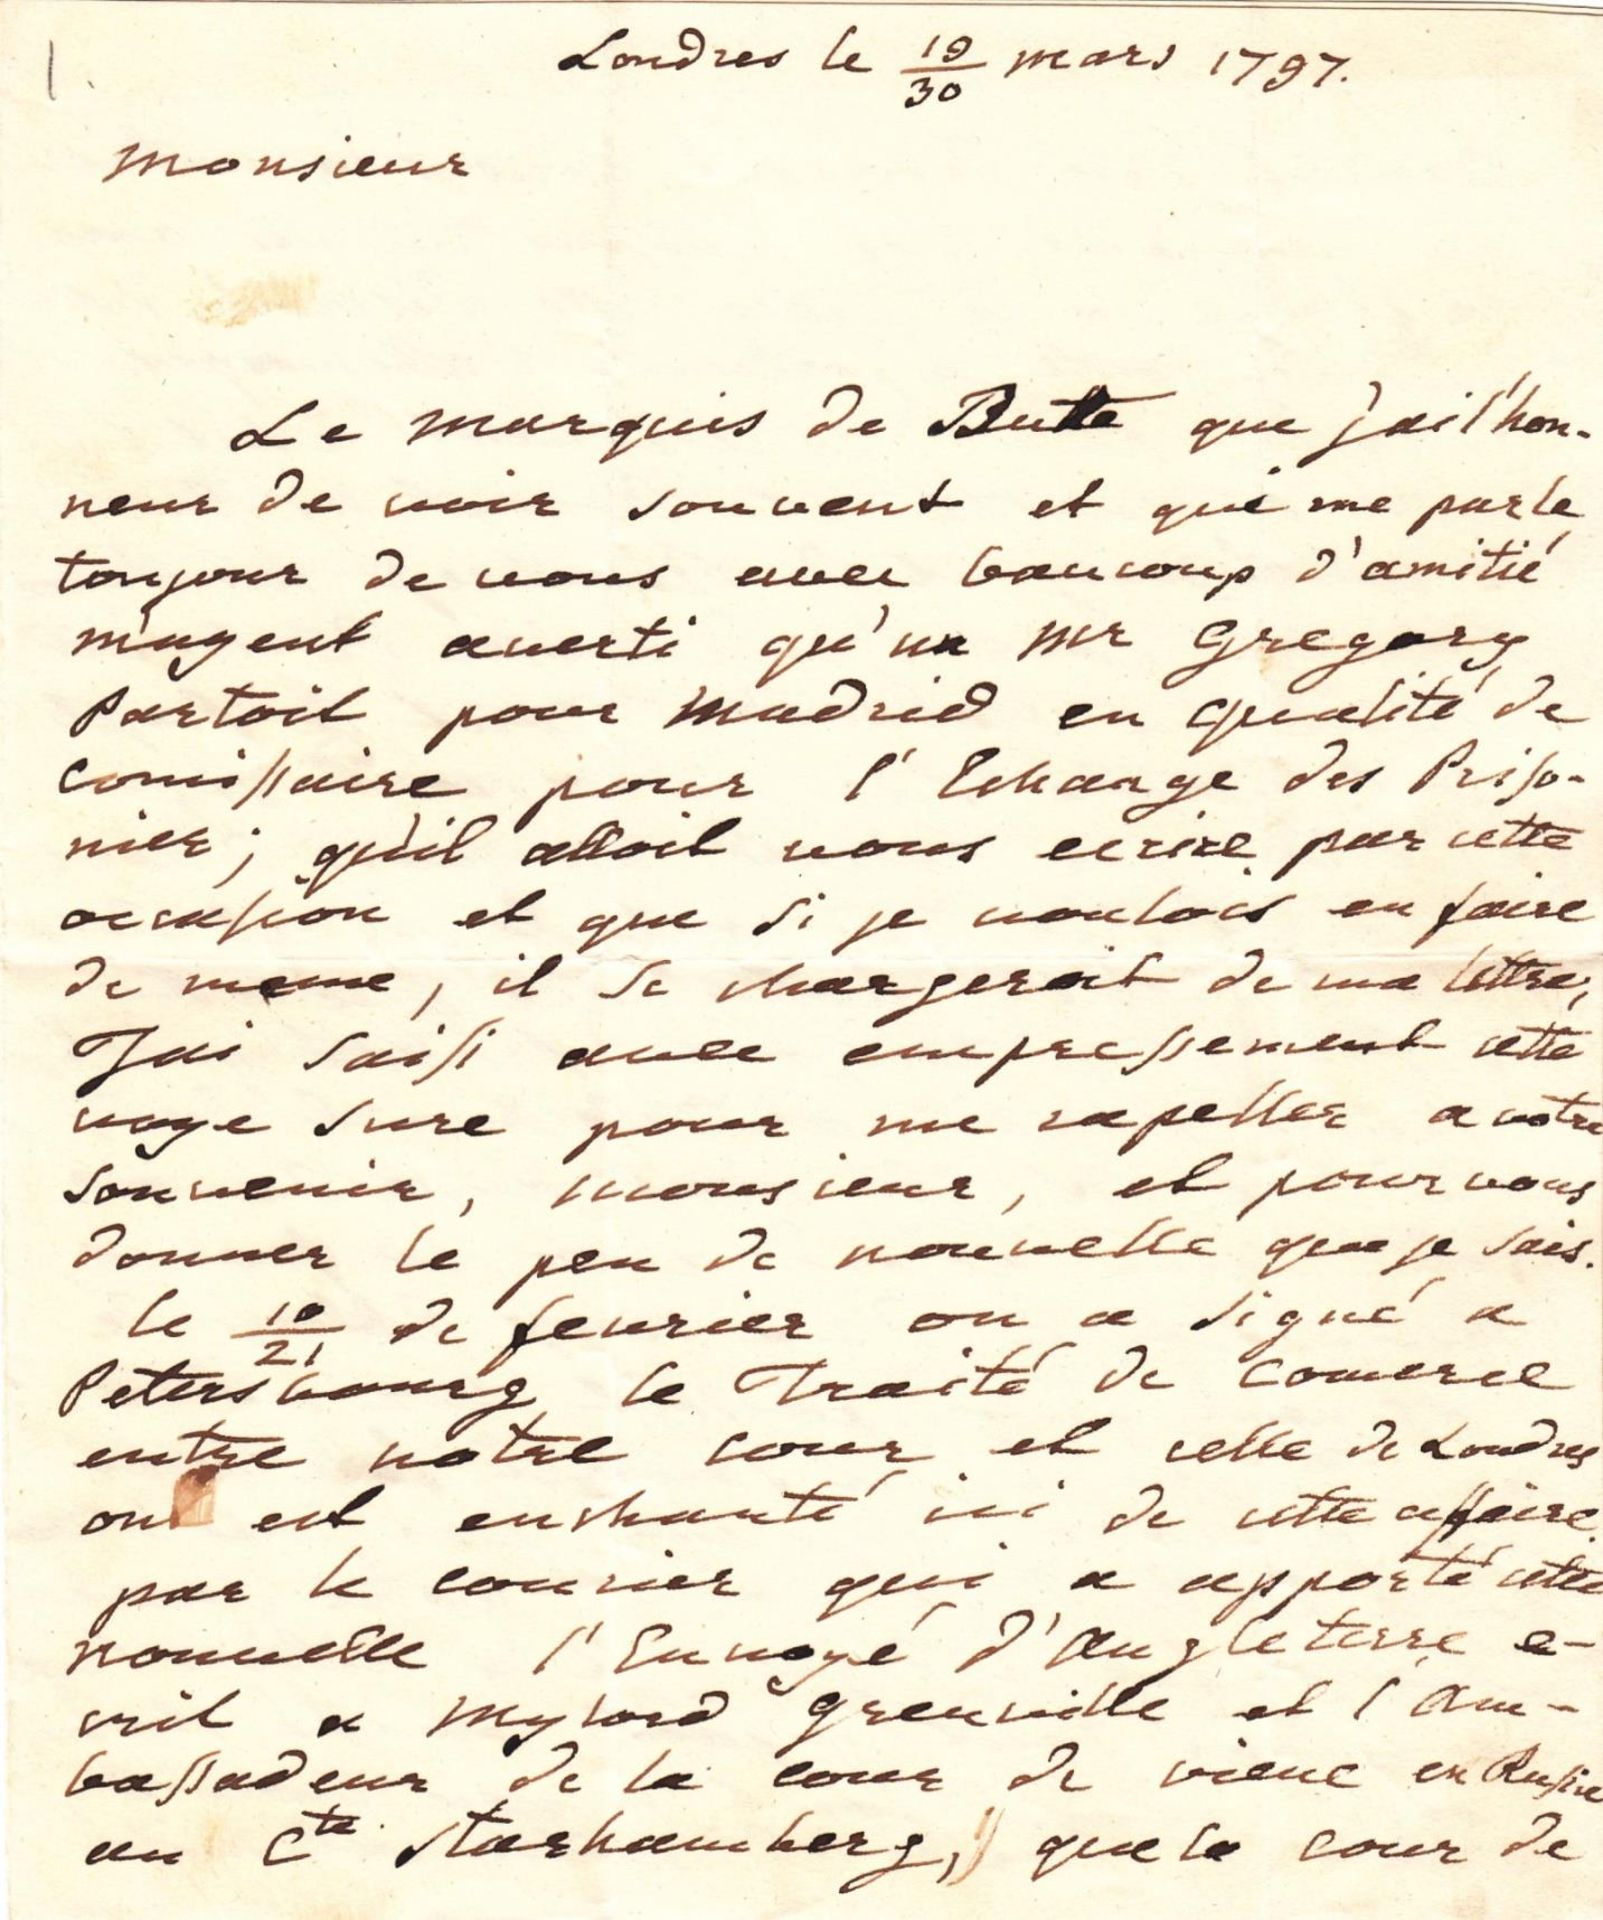 Londres le 19/30 mars 1797.
Monsieur
Le marquis de Butte que j'ai l'hon-
neur de voir souvent et qui me parle
toujour de vous avec baucoup d'amitié
m'ayent averti qu'un Mr Gregory
Partoit pour Madrid en qualité de
comissaire pour l'Echange des Priso-
nier; qu'il alloit vous ecrire par cette
occasion et que si je voulois en faire
de meme, il se chargeroit de ma lettre;
J'ai saisi avec empressement cette
voye sure pour me rapeller a votre
souvenir, monsieur, et pour vous
donner le peu de nouvelle que je sais.
le 10/21 de fevrier on a signé a
Petersbourg le Traité de comerce
entre notre cour et celle de Londres
on est enchanté ici de cette affaire.
par le courier qui a apporté cette
nouvelle l'Envoyé d'Angleterre e-
crit a Mylord Grenville et l'Am-
bassadeur de la cour de viene en Russie
au Cte Starhamberg, que la cour de